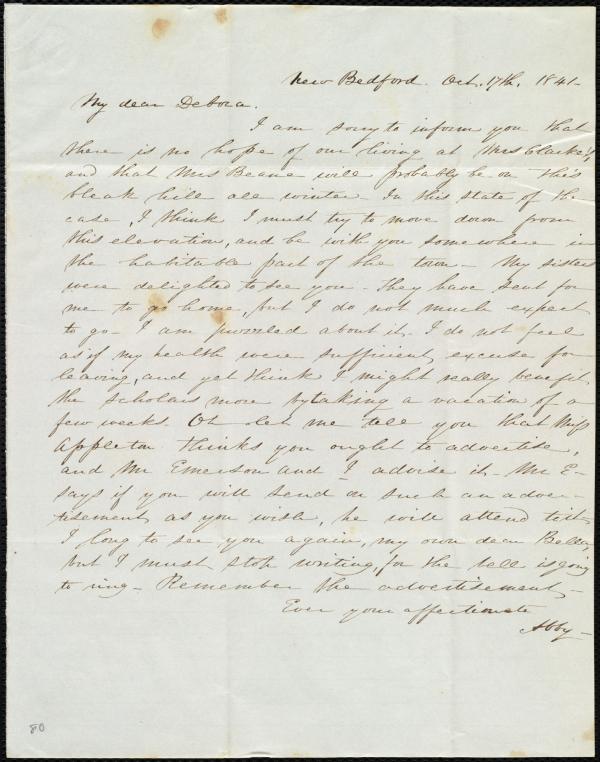 New Bedford. Oct. 17th. 1841-
My dear Debora.
I am sorry to inform you that
there is no hope of our living at Mrs Clarke's,
and that Mrs Beane will probably be on this
bleak hill all winter. In this state of the
case, I think I must try to move down from
this elevation, and be with you somewhere in
the habitable part of the town- My sisters
were delighted to see you- They have sent for
me to go home, but I do not much expect
to go- I am puzzled about it. I do not feel
as if my health were sufficient excuse for
leaving, and yet think I might really benefit
the scholars more by taking a vacation of a
few weeks. Oh let me tell you that Miss
Appleton thinks you ought to advertise,
and Mr Emerson and I advise it- Mr E-
says if you will send on such an adver-
tisement as you wish, he will attend to it.
I long to see you again, my own dear
but I must stop writing, for the bell is going
to ring- Remember the advertisement-
Ever your affectionate
Abby-
80